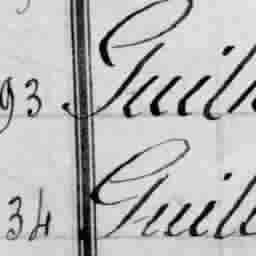 93 Guil
34 Guill